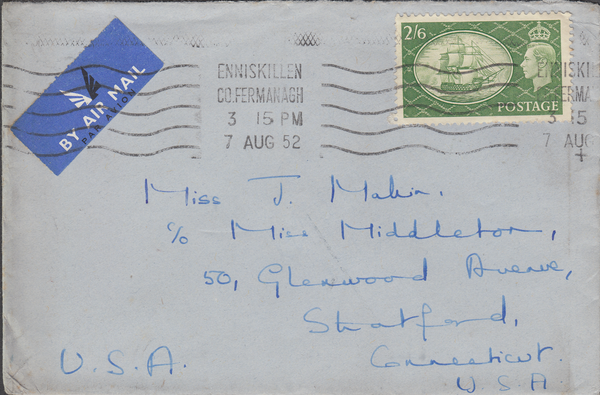 BY AIR MAIL
PAR AVION
ENNISKILLEN
CO.FERMANAGH
3 15 PM
7 AUG 52
2/6
POSTAGE
ENNISKI
FERMA
3 15
7 AUG
Miss J. Makin.
c/o Miss Middleton,
50, Glenwood Avenue,
Stratford,
Connecticut.
U.S.A.
U.S.A.